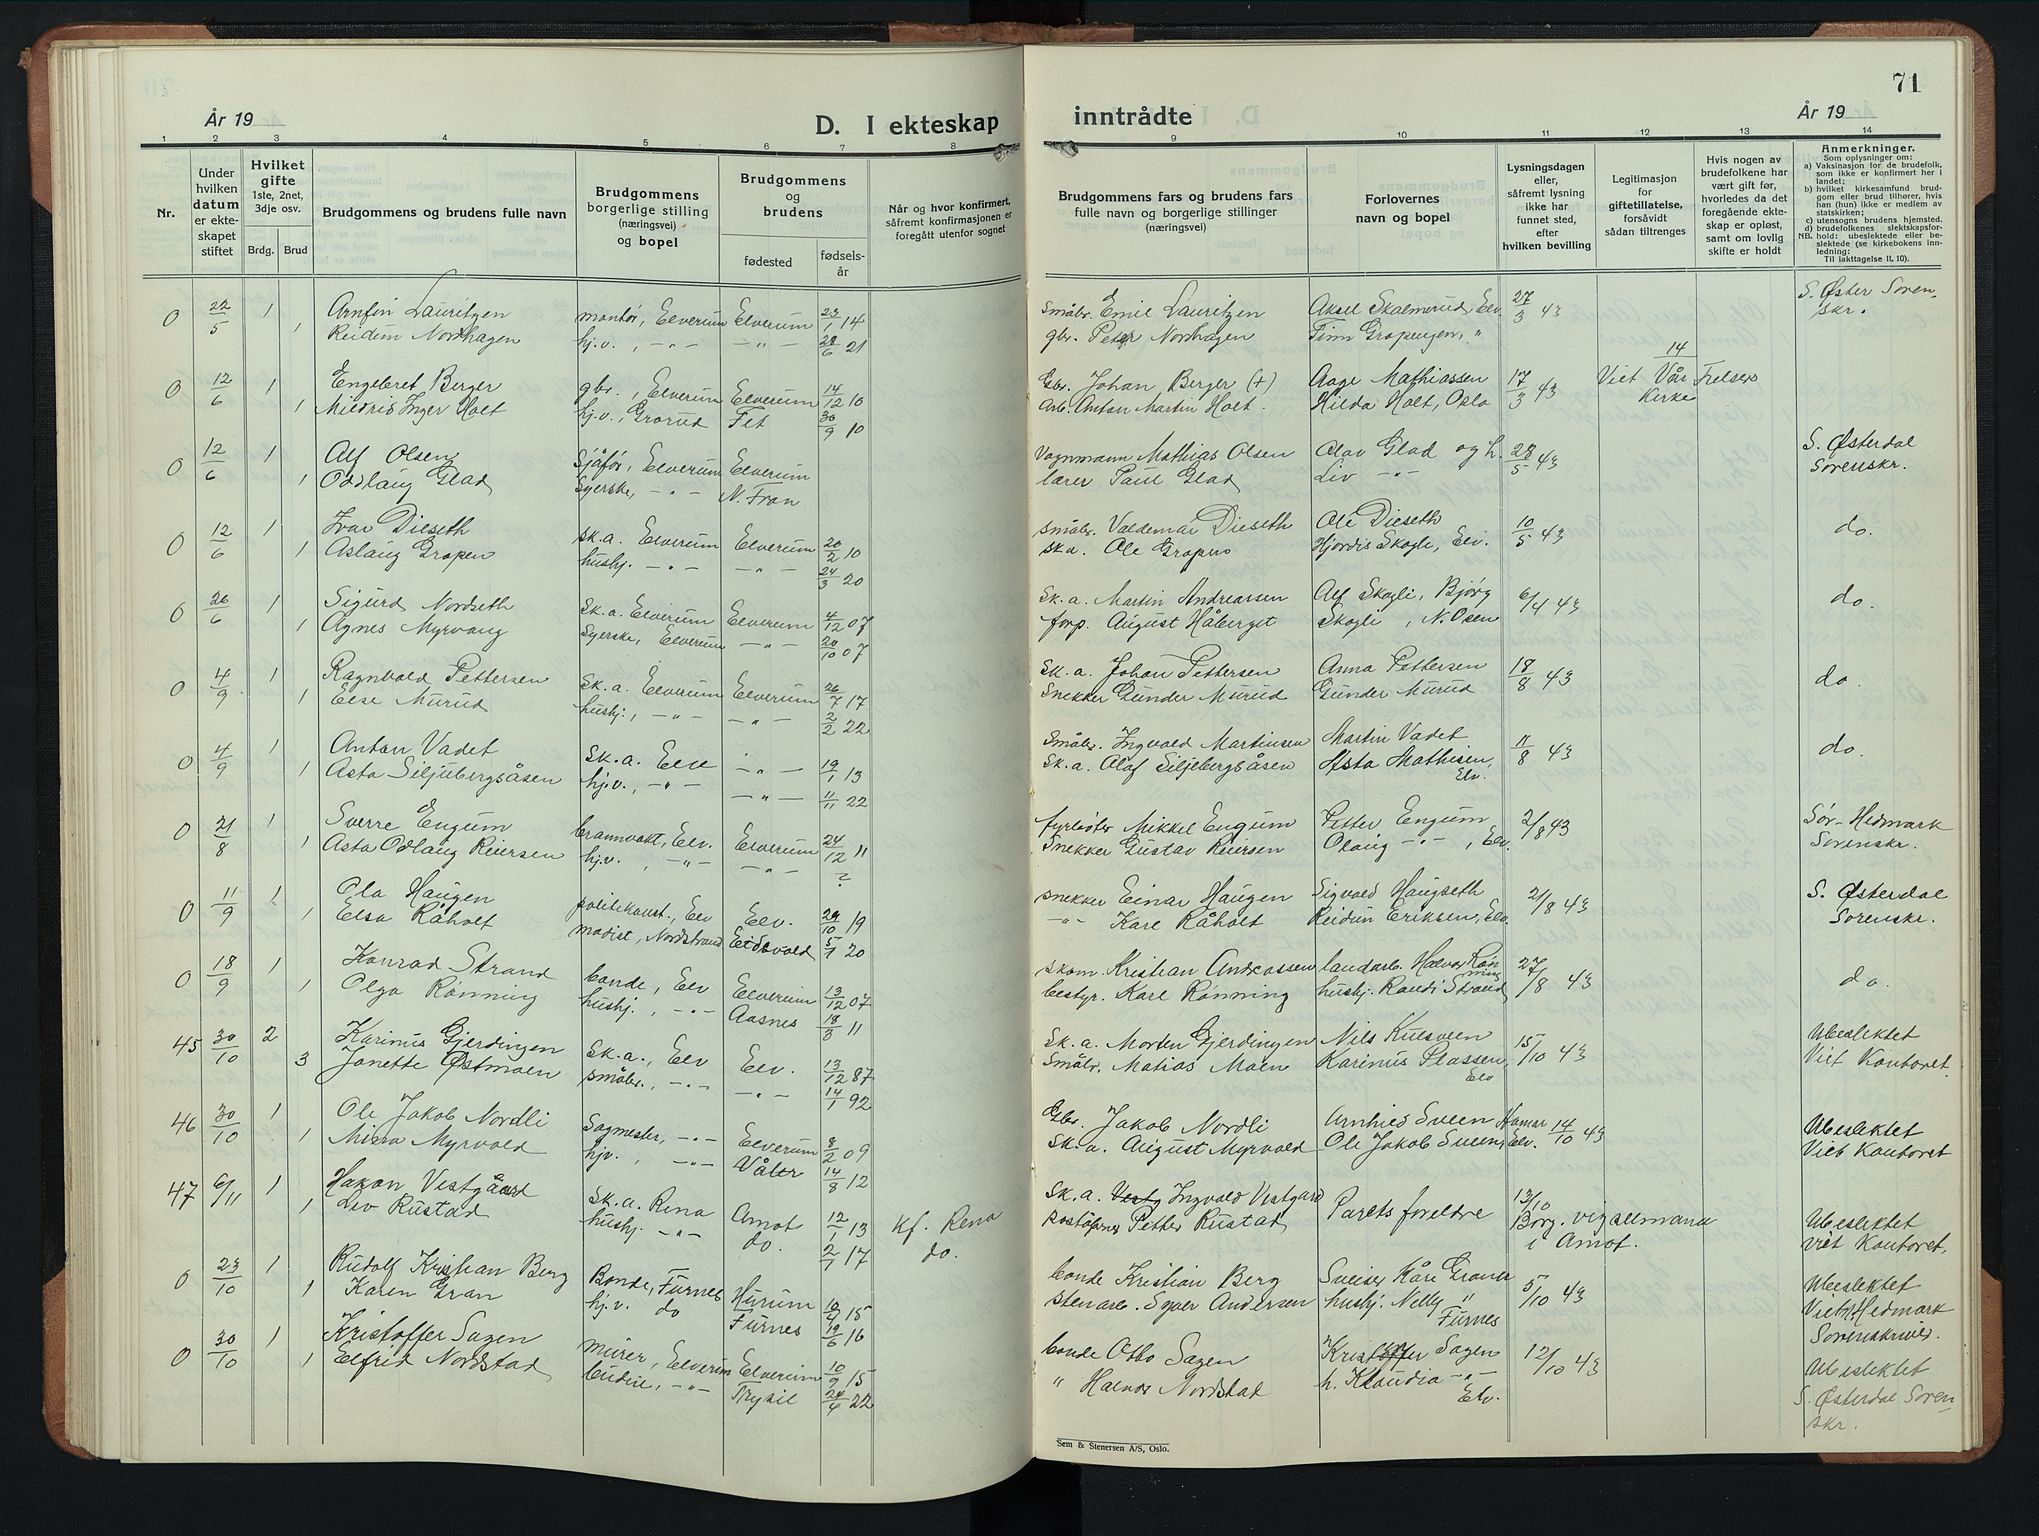 År 19
D. I ekteskap
1 2 3 4 5 6 7 8
Nr.
Under hvilken datum er ekteskapet stiftet
Hvilket gifte 1ste, 2net, 3dje osv.
Brdg. Brud
Brudgommens og brudens fulle navn
Brudgommens borgerlige stilling (næringsvei) og bopel
Brudgommens og brudens
fødested fødsels-år
Når og hvor konfirmert, såfremt konfirmasjonen er foregått utenfor sognet
0 22/5 1 Arnfin Lauritzen montør, Elverum Elverum 23/1 14
1 Reidun Nordhagen hj.v., -"- -"- 28/6 21
0 12/6 1 Engebret Berger gbr., Elverum Elverum 14/12 10
1 Mildrid Inger Holt hj.v., Grorud Fet 30/9 10
0 12/6 1 Alf Olsen Sjåfør, Elverum Elverum
1 Oddlaug Glad Syerske, -"- N. Fron
0 12/6 1 Ivar Dieseth sk.a. Elverum Elverum 20/2 10
1 Aslaug Gropen hushj. -"- -"- 24/3 20
0 26/6 1 Sigurd Nordseth Sk.a. Elverum Elverum 4/12 07
1 Agnes Myrvang Syerske, Elverum -"- 20/10 07
0 4/9 1 Ragnvald Pettersen Sk.a. Elverum Elverum 26/7 17
1 Else Murud hushj., -"- -"- 2/2 22
0 4/9 1 Anton Vadet Sk.a. Elv -"- 19/1 13
1 Asta Siljubergsåsen hj.v., -"- -"- 11/11 22
0 21/8 1 Sverre Engum brannvakt, Elv. Elverum 24/12 11
1 Asta Odlaug Reiersen hj.v. -"- -"- ?
0 11/9 1 Ola Haugen politikonst., Elv Elv. 29/10 19
1 Elsa Råholt modist, Nordstrand Eidsvold 5/1 20
0 18/9 1 Konrad Strand bonde, Elv Elverum 13/12 07
1 Olga Rønning hushj., -"- Aasnes 18/3 11
45 30/10 2 Karinus Gjerdingen Sk.a., Elv Elv. 13/12 87
3 Janette Østmoen småbr., -"- -"- 14/1 92
46 30/10 1 Ole Jakob Nordli Sagmester, -"- Elverum 8/2 09
1 Minna Myrvold hjv., -"- Våler 14/8 12
47 6/11 1 Håkon Vestgård Sk.a. Rena Åmot 12/1 13 Kf. Rena
1 Liv Rustad hushj. -"- do. 2/1 17 do.
0 23/10 1 Rudolf Kristian Berg Bonde, Furnes Hurum 10/4 15
1 Karen Gran hj.v. do Furnes 19/6 16
0 30/10 1 Kristoffer Sagen murer, Elverum Elverum 10/9 15
1 Elfrid Nordstad budeie, -"- Trysil 24/4 22
71
inntrådte
År 19
9 10 11 12 13 14
Brudgommens fars og brudens fars fulle navn og borgerlige stillinger (næringsvei)
Forlovernes navn og bopel
Lysningsdagen eller, såfremt lysning ikke har funnet sted, efter hvilken bevilling
Legitimasjon for giftetillatelse, forsåvidt sådan tiltrenges
Hvis nogen av brudefolkene har vært gift før, hvorledes da det foregående ekteskap er opløst, samt om lovlig skifte er holdt
Anmerkninger.
Som oplysninger om:
a) Vaksinasjon for de brudefolk, som ikke er konfirmert her i landet;
b) hvilket kirkesamfund brudgom eller brud tilhører, hvis han (hun) ikke er medlem av statskirken;
c) utensogns brudens hjemsted.
d) brudefolkenes slektskapsforhold: ubeslektede eller beslektede (se kirkebokens innledning:
NB. Til iakttagelse II, 10).
Småbr. Emil Lauritzen Aksel Skalmerud, Elv. 27/3 43 S. Øster Soren-
gbr. Peter Nordhagen Finn Gropengen, " skr.
Gbr. Johan Berger (+) Aage Mathiassen 17/3 43 14 Viet Vår Frelsers
Arb. Anton Martin Holt. Hilda Holt, Oslo Kirke
Vognmann Mathias Olsen Olav Glad og h. 28/5 43 S. Østerdal
lærer Paul Glad Liv -"- Sorenskr.
Småbr. Valdemar Dieseth Ole Dieseth 10/5 43 do.
Sk.a. Ole Gropen Hjørdis Skogli, Elv.
Sk.a. Martin Andreassen Alf Skogli, Bjørg 6/4 43 do.
forp. August Håberget Skogli, N. Osen
Sk.a. Johan Pettersen Anna Pettersen 18/8 43 do.
Snekker Gunder Murud Gunder Murud
Småbr. Ingvald Martinsen Martin Vadet 11/8 43 do.
Sk.a. Olaf Siljebergsåsen Asta Mathisen, Elv.
fyrbøter Mikkel Engum Petter Engum 2/8 43 Sør-Hedmark
Snekker Gustav Reiersen Olaug -"-, Elv. Sorenskr.
Snekker Einar Haugen Sigvald Haugseth 2/8 43 S. Østerdal
-"- Kare Råholt Reidun Eriksen, Elv. Sorenskr.
skom. Kristian Andreassen landarb. Halvor Rønning 27/8 43 do.
bestyr. Karl Rønning hushj. Randi Strand
Sk.a. Morten Gjerdingen Nils Kulsveen 15/10 43 Ubeslektet
Småbr. Matias Moen Karinus Plassen, Elv Viet Kontoret.
Gbr. Jakob Nordli Arnhild Sveen Hamar 14/10 43 Ubeslektet
Sk.a. August Myrvold Ole Jakob Sveen, Elv. Viet Kontoret
Sk.a. Ingvald Vestgard Parets foreldre 13/10 Borg. vigselmann Ubeslektet
Poståpner Petter Rustad i Åmot. viet Kontoret.
bonde Kristian Berg Sveiser Kåre Granes 5/10 43 Ubeslektet
stenarb. Syver Andersen hushj. Nelly " Furnes Viet Hedmark
Sorenskriver.
bonde Otto Sagen Kristoffer Sagen 12/10 43 Ubeslektet
" Halvor Nordstad h. Klaudia -"- Elv. S. Østerdal Soren-
skr.
Sem & Stenersen A/S, Oslo.